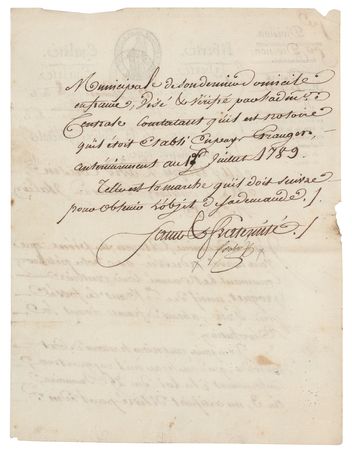 Municipale de son dernier domicile
en france, Visé & vérifié par l'adm.on
Centrale constatant qu'il est notoire
qu'il étoit Etabli En pays Etranger,
antérieurement au 1er Juillet 1789.
Telle est la marche qu'il doit suivre
pour obtenir l'objet de sa demande ./.
Salut & fraternité ./.